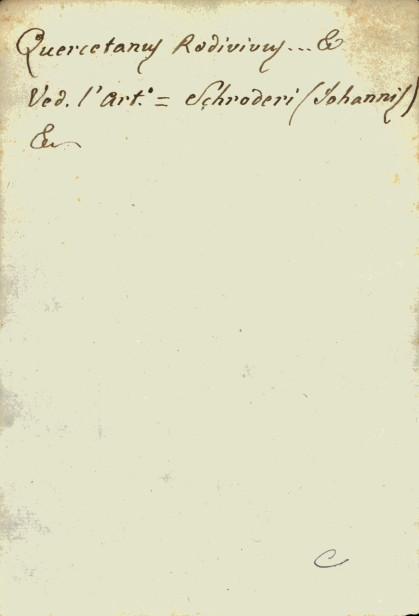 Quercetanus Rodivivus... &
Ved. l'Art.º = Schroderi (Johannis)
&
C